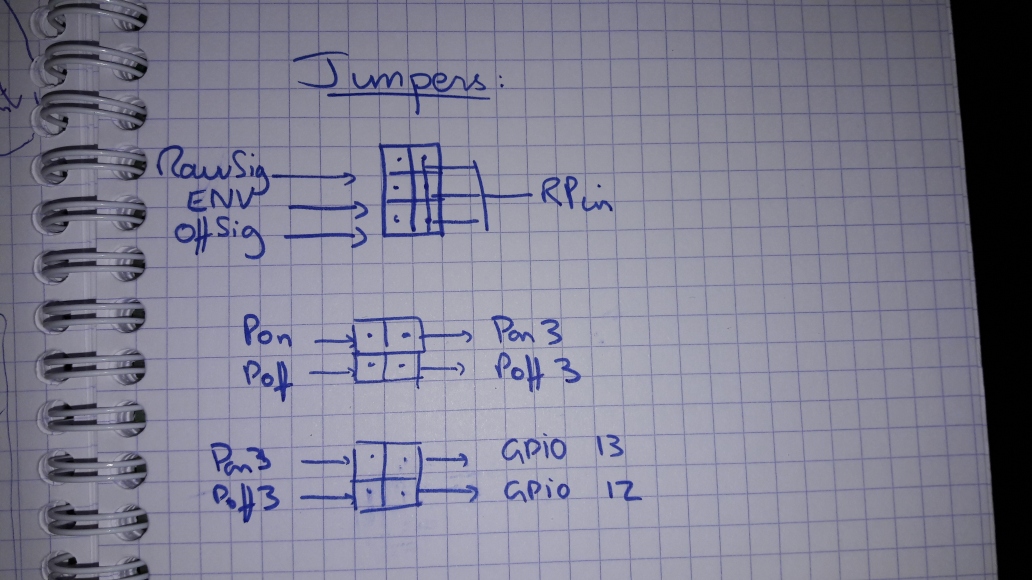 Jumpers:
RawSig
ENV
OffSig
RPin
Pon Pon 3
Poff Poff 3
Pon3 GPiO 13
Poff3 GPiO 12